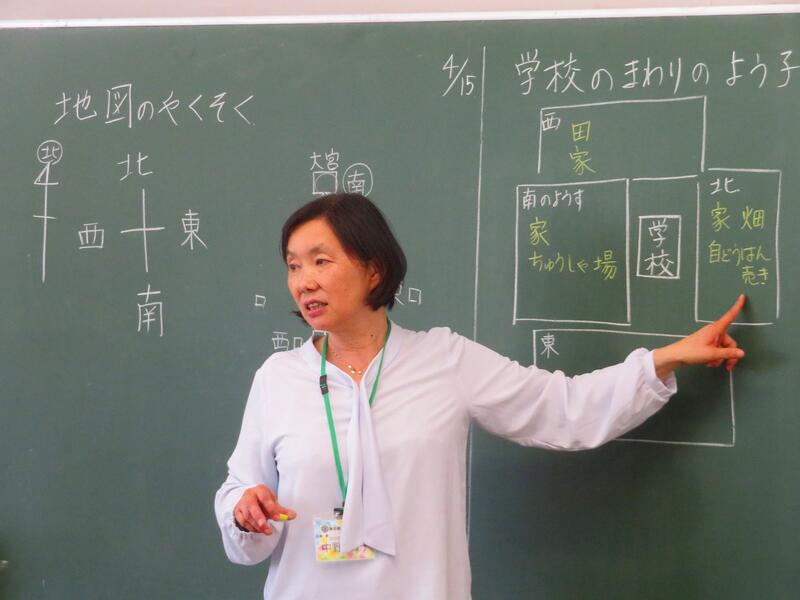 地図のやくそく
北
北
西
東
南
大宮
南
西
4/15
学校のまわりのよう子
西
田
家
南のようす
家
ちゅうしゃ場
学
校
北
家 畑
自どうはん
売き
東
中野